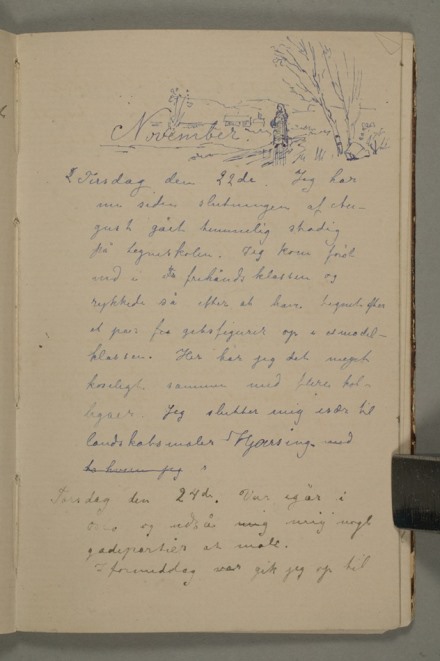 November.
Tirsdag den 22de. Jeg har
nu siden slutningen af Au-
gust gået temmelig stadig
på tegneskolen. Jeg kom først
ned i frihåndsklassen og
rykkede så efter at have tegnet efter
et par fra gibsfigurer op i modell-
klassen. Her har jeg det meget
koseligt sammen med flere kol-
leger. Jeg slutter mig især til
landskabsmaler Hjersing med
hvem jeg
Torsdag den 24de. Var igår i
og udså mig nogle
gadepartier at male.
I formiddag var gik jeg op til